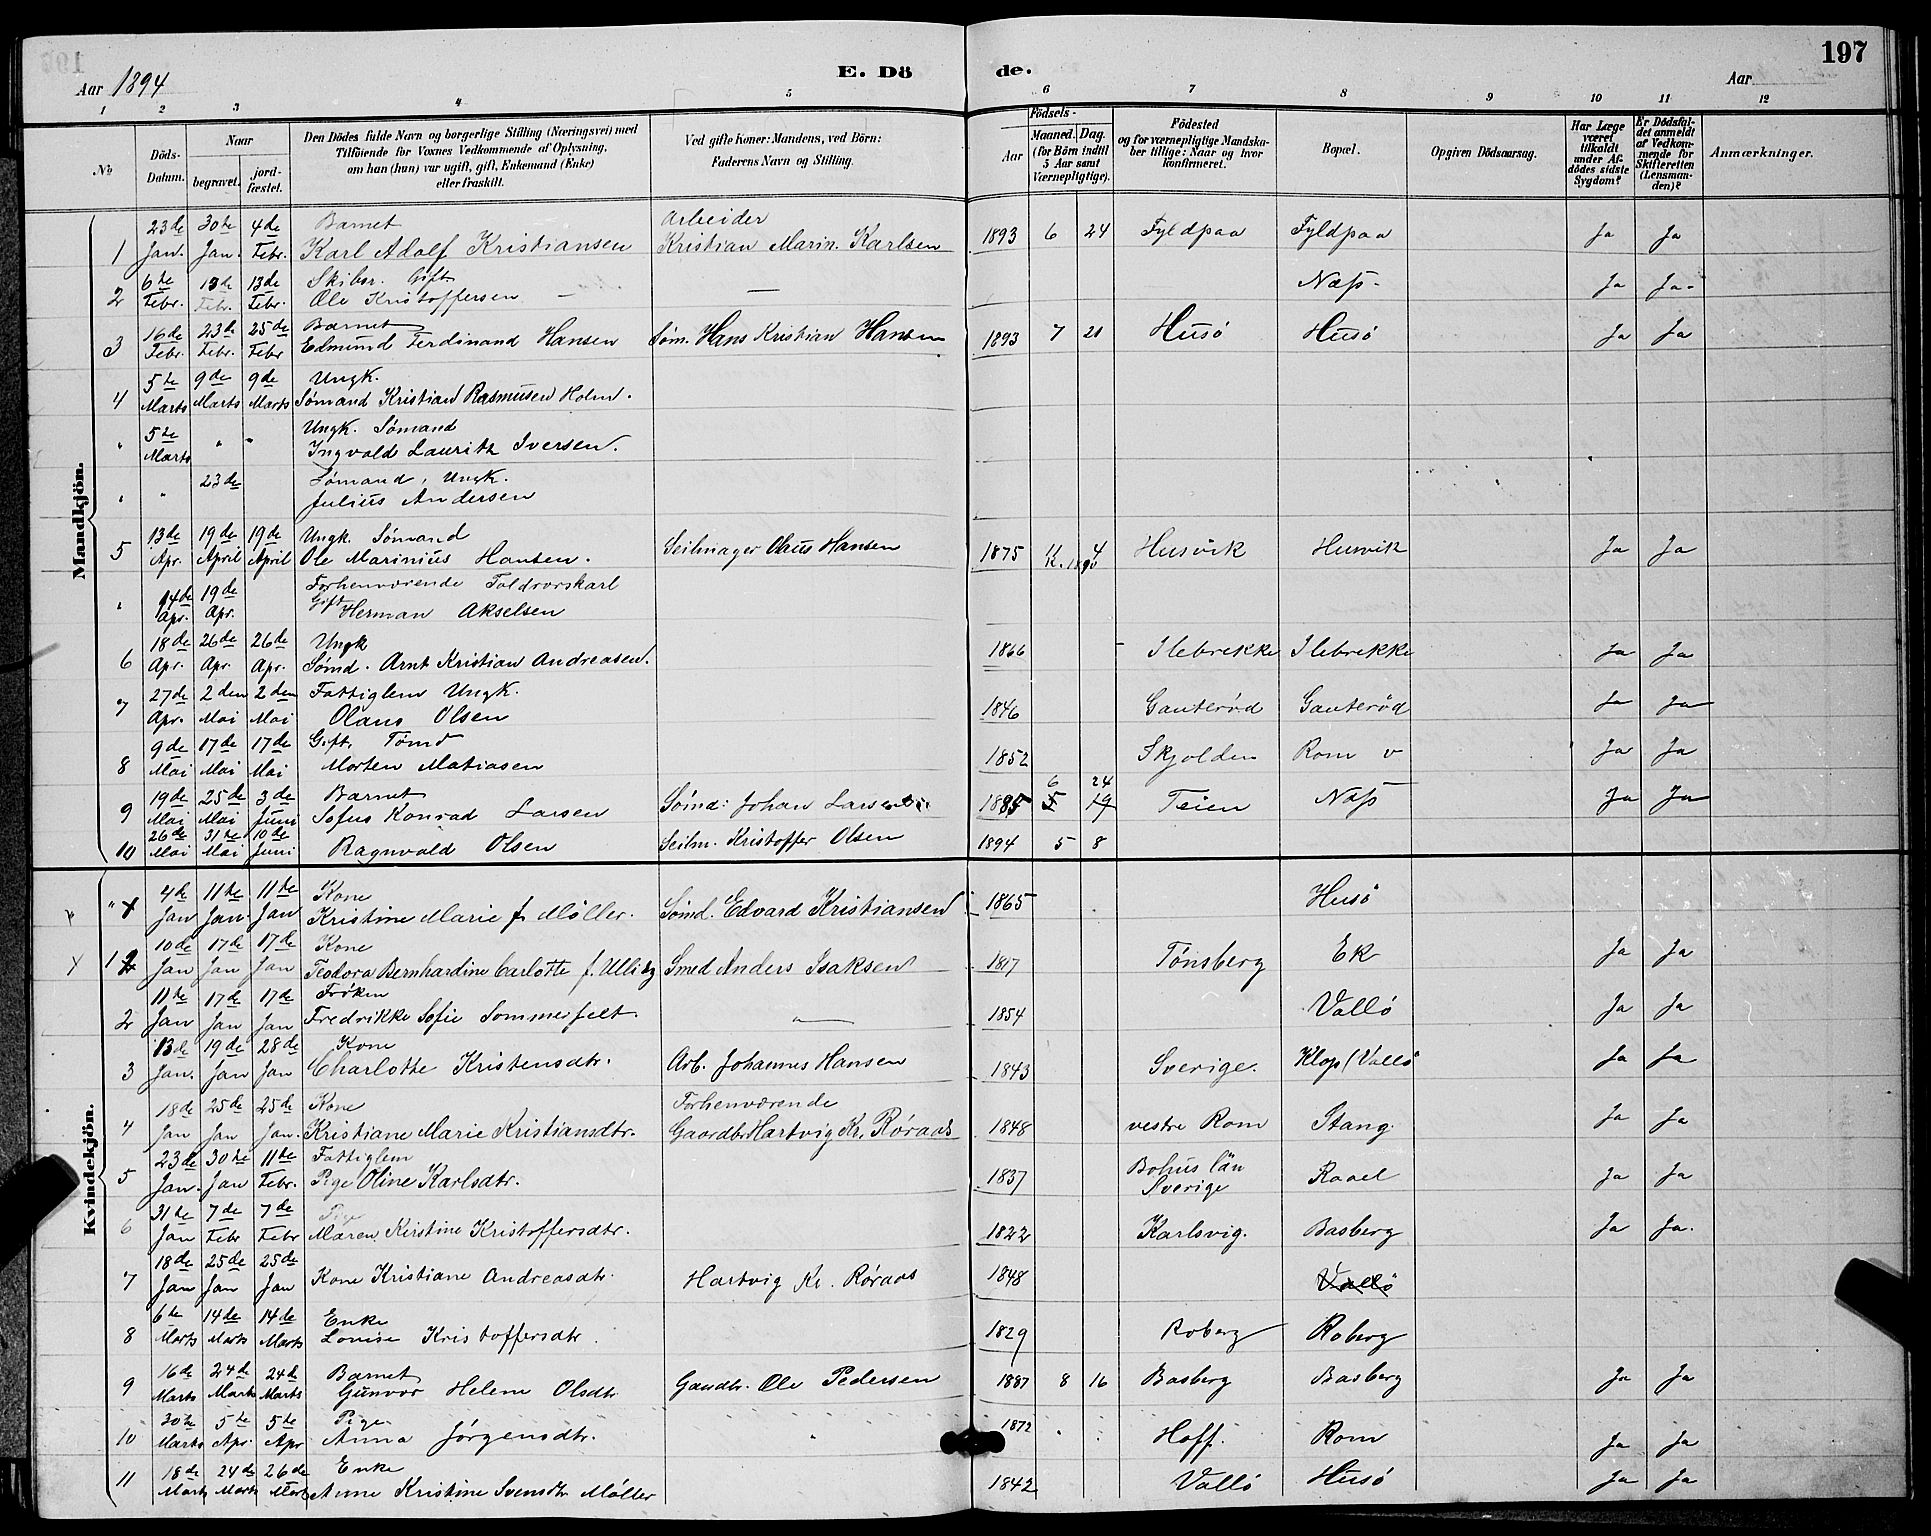 197
Aar 1894
E. Dö de.
Aar
1 2 3 4 5 6 7 8 9 10 11 12
No
Döds-Datum.
Naar
begravet.
jord-fæstet.
Den Dödes fulde Navn og borgerlige Stilling (Næringsvei) med
Tilföiende for Voxnes Vedkommende af Oplysning,
om han (hun) var ugift, gift, Enkemand (Enke)
eller fraskilt.
Ved gifte Koner: Mandens, ved Börn:
Faderens Navn og Stilling.
Födsels-
Aar
Maaned. Dag.
(for Börn indtil
5 Aar samt
Værnepligtige).
Födested
og for værnepligtige Mandska-
ber tillige: Naar og hvor
konfirmeret.
Bopæl.
Opgiven Dödsaarsag.
Har Læge
været
tilkaldt
under Af-
dödes sidste
Sygdom?
Er Dödsfal-
det anmeldt
af Vedkom-
mende for
Skifteretten
(Lensman-
den)?
Anmærkninger.
Mandkjön.
23de 30te 4de Barnet Arbeider
1 Jan. Jan. Febr. Karl Adolf Kristiansen Kristian Marin. Karlsen 1893 6 24 Fyldpaa Fyldpaa Ja Ja
6te 13de 13de Skibsr. Gift
2 Febr. Febr. Febr. Ole Kristoffersen — — Næss Ja Ja
16de 23de 25de Barnet
3 Febr. Febr. Febr Edmund Ferdinand Hansen Søm. Hans Kristian Hansen 1893 7 21 Husö Husö Ja Ja
5te 9de 9de Ungk.
4 Marts Marts Marts Sømand Kristian Rasmusen Holm.
5te Ungk. Sømand
" Marts " " Ingvald Lauritz Iversen.
23de Sømand, Ungk.
" " Julius Andersen
13de 19de 19de Ungk. Sømand
5 Apr. April April Ole Marinius Hansen. Seilmager Olaus Hansen 1875 4 Husvik Husvik Ja Ja
14de 19de Forhenværende Toldrorskarl
" Apr. Apr. Gift Herman Akselsen
18de 26de 26de Ungk
6 Apr. Apr. Apr. Sømd. Arnt Kristian Andreasen. 1866 Ilebrekke Ilebrekke Ja Ja
27de 2den 2den Fattiglem Ungk.
7 Apr. Mai Mai Olaus Olsen 1846 Gauterød Gauterød Ja Ja
9de 17de 17de Gift. Tømd
8 Mai Mai Mai Morten Matiasen 1852 Skjolden Rom v Ja Ja
19de 25de 3de Barnet 6 24
9 Mai Mai Juni Sofus Konrad Larsen Sømd: Johan Larsen 1885 5 19 Teien Næss Ja Ja
26de 31te 10de
10 Mai Mai Juni Ragnvald Olsen Seilm. Kristoffer Olsen 1894 5 8
Kvindekjön.
4de 11te 11te Kone
" Jan Jan Jan Kristine Marie f. Møller. Sømd. Edvard Kristiansen 1865 Husö
10de 17de 17de Kone
1 Jan Jan Jan Teodora Bernhardine Carlotte f. Ullitz Smed Anders Isaksen 1817 Tønsberg Ek Ja Ja
11te 17de 17de Frøken
2 Jan Jan Jan Fredrikke Sofie Sommerfelt. " 1854 Vallö Ja Ja
13de 19de 28de Kone
3 Jan. Jan Jan Charlotte Kristensdtr. Arb. Johannes Hansen 1843 Sverige. Klop/Vallö Ja Ja
18de 25de 25de Kone Forhenværende
4 Jan Jan Jan. Kristiane Marie Kristiansdtr. Gaardbr Hartvig Kr. Røraas 1848 vestre Rom Stang Ja Ja
23de 30te 11te Fattiglem
5 Jan. Jan Febr. Pige Oline Karlsdtr. 1837 Bohus län Sverige Raael Ja Ja
31te 7de 7de Pige
6 Jan Febr Febr Maren Kirstine Kristoffersdtr. 1822 Karlsvig. Basberg Ja Ja.
18de 25de 25de
7 Jan Jan Jan Kone Kristiane Andreasdtr. Hartvig Kr. Røraas 1848 Vallö
6te 14de 14de Enke
8 Marts Marts Marts Lovise Kristoffersdtr. 1829 Roberg Roberg
16de 24de 24de Barnet
9 Marts Marts Marts Gunvor Helene Olsdtr Gaadbr. Ole Pedersen 1887 8 16 Basberg Basberg Ja Ja
30te 5te 5te Pige
10 Marts Apr. Apr Anna Jørgensdtr. " 1872 " " Hoff. Rom Ja Ja
18de 24de 26de Enke
11 Marts Marts Marts Anne Kristine Svensdtr Møller 1842 Vallö Husö Ja Ja